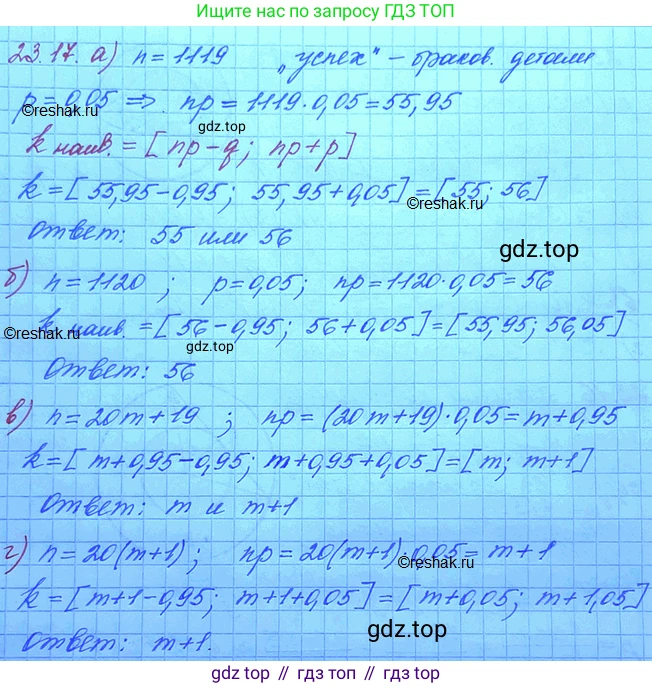 Ищите нас по запросу ГДЗ ТОП
23.17. а) n = 1119 „успех“ – браков. детали
p = 0,05 => np = 1119·0,05 = 55,95
©reshak.ru
gdz.top
k наив. = [np – q; np + p]
k = [55,95 – 0,95; 55,95 + 0,05] = [55; 56]
©reshak.ru
Ответ: 55 или 56
gdz.top
б) n = 1120 ; p = 0,05; np = 1120·0,05 = 56
k наив. = [56 – 0,95; 56 + 0,05] = [55,95; 56,05]
©reshak.ru
gdz.top
Ответ: 56
в) n = 20m + 19 ; np = (20m + 19)·0,05 = m + 0,95
k = [m + 0,95 – 0,95; m + 0,95 + 0,05] = [m; m + 1]
Ответ: m и m + 1
г) n = 20(m + 1) ; np = 20(m + 1)·0,05 = m + 1
©reshak.ru
k = [m + 1 – 0,95; m + 1 + 0,05] = [m + 0,05; m + 1,05]
Ответ: m + 1.
gdz.top
gdz top // гдз топ // gdz.top // гдз.топ